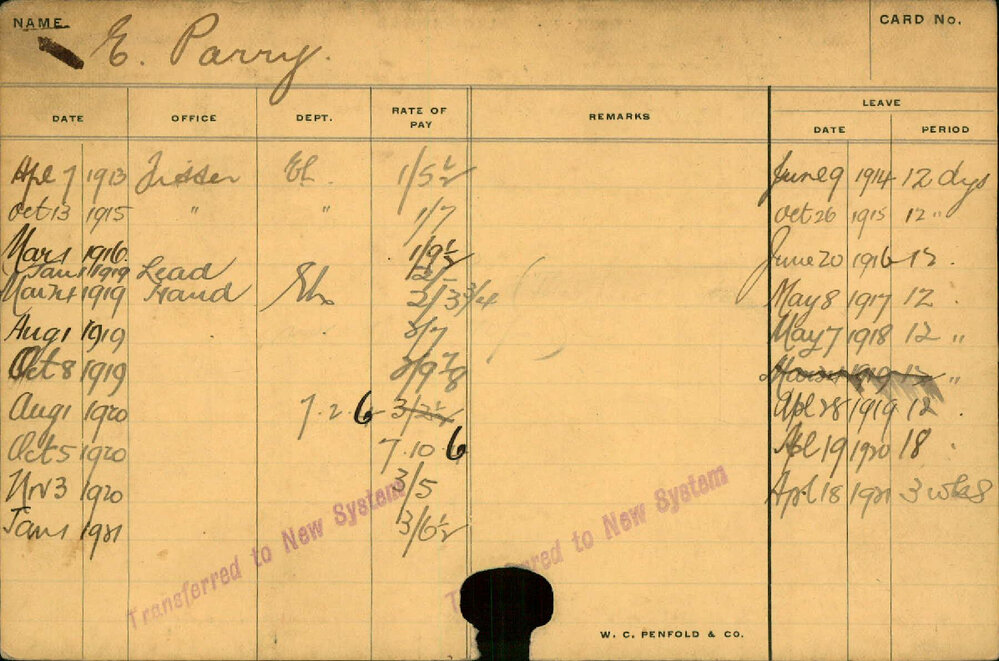 NAME E. Parry. CARD No.
DATE OFFICE DEPT. RATE OF PAY REMARKS LEAVE DATE PERIOD
Apl 7 1913 El. 1/5 1/2 June 9 1914 12 dys
Oct 13 1915 " " 1/7 Oct 26 1915 12 "
Mar 1 1916 1/9 1/2 June 20 1916 12.
Jan 1 1919 Lead
Mar 24 1919 Hand 2/3 3/4 May 8 1917 12 .
Aug 1 1919 2/7 May 7 1918 12 "
Oct 8 1919 2/9 7/8 1919 12 "
Aug 1 1920 7.2.6 3/2 1/4 Apl 28 1919 12 .
Oct 5 1920 7.10 6 Apl 19 1920 18 "
Nov 3 1920 3/5 Apl 18 1921 3 wks
Jan 1 1921 3/6 1/2
Transferred to New System
red to New System
W. C. PENFOLD & CO.